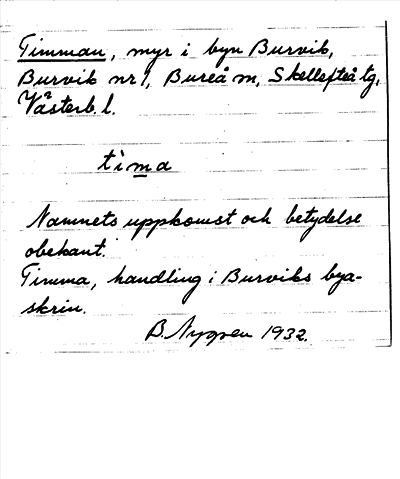 Timman, myr i byn Burvik,
Burvik nr 1, Bureå m, Skellefteå tg,
Västerb l.
tima
Namnets uppkomst och betydelse
obekant.
Timma, handling i Burviks bya-
skrin.
B. Nygren 1932.